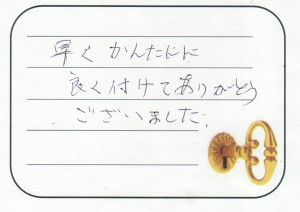 早く かんたんに
良く付けてありがとう
ございました。